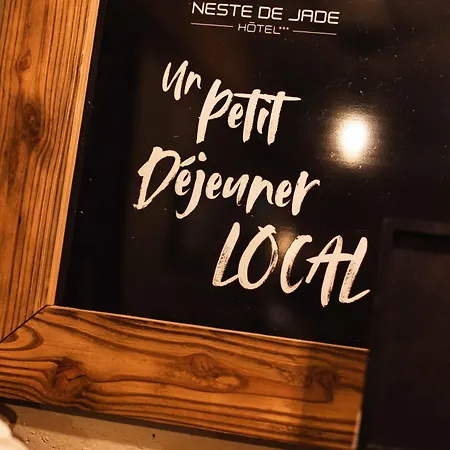 NESTE DE JADE
HÔTEL***
Un
Petit
Déjeuner
LOCAL